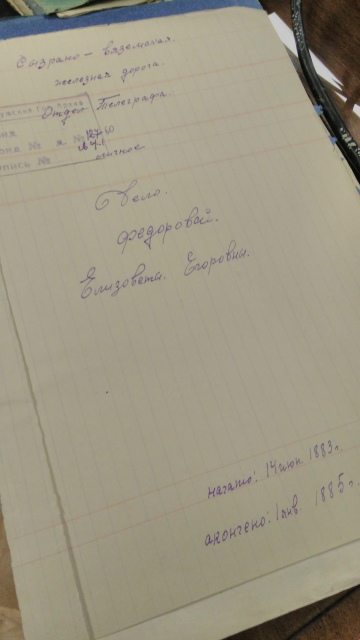 Сызрано - вяземская.
железная дорога.
Отдел Телеграфа.
личное
Дело.
Федоровой.
Елизовета. Егоровны.
начато: 14 июн. 1883 г.
акончено: 1 янв. 1885 г.